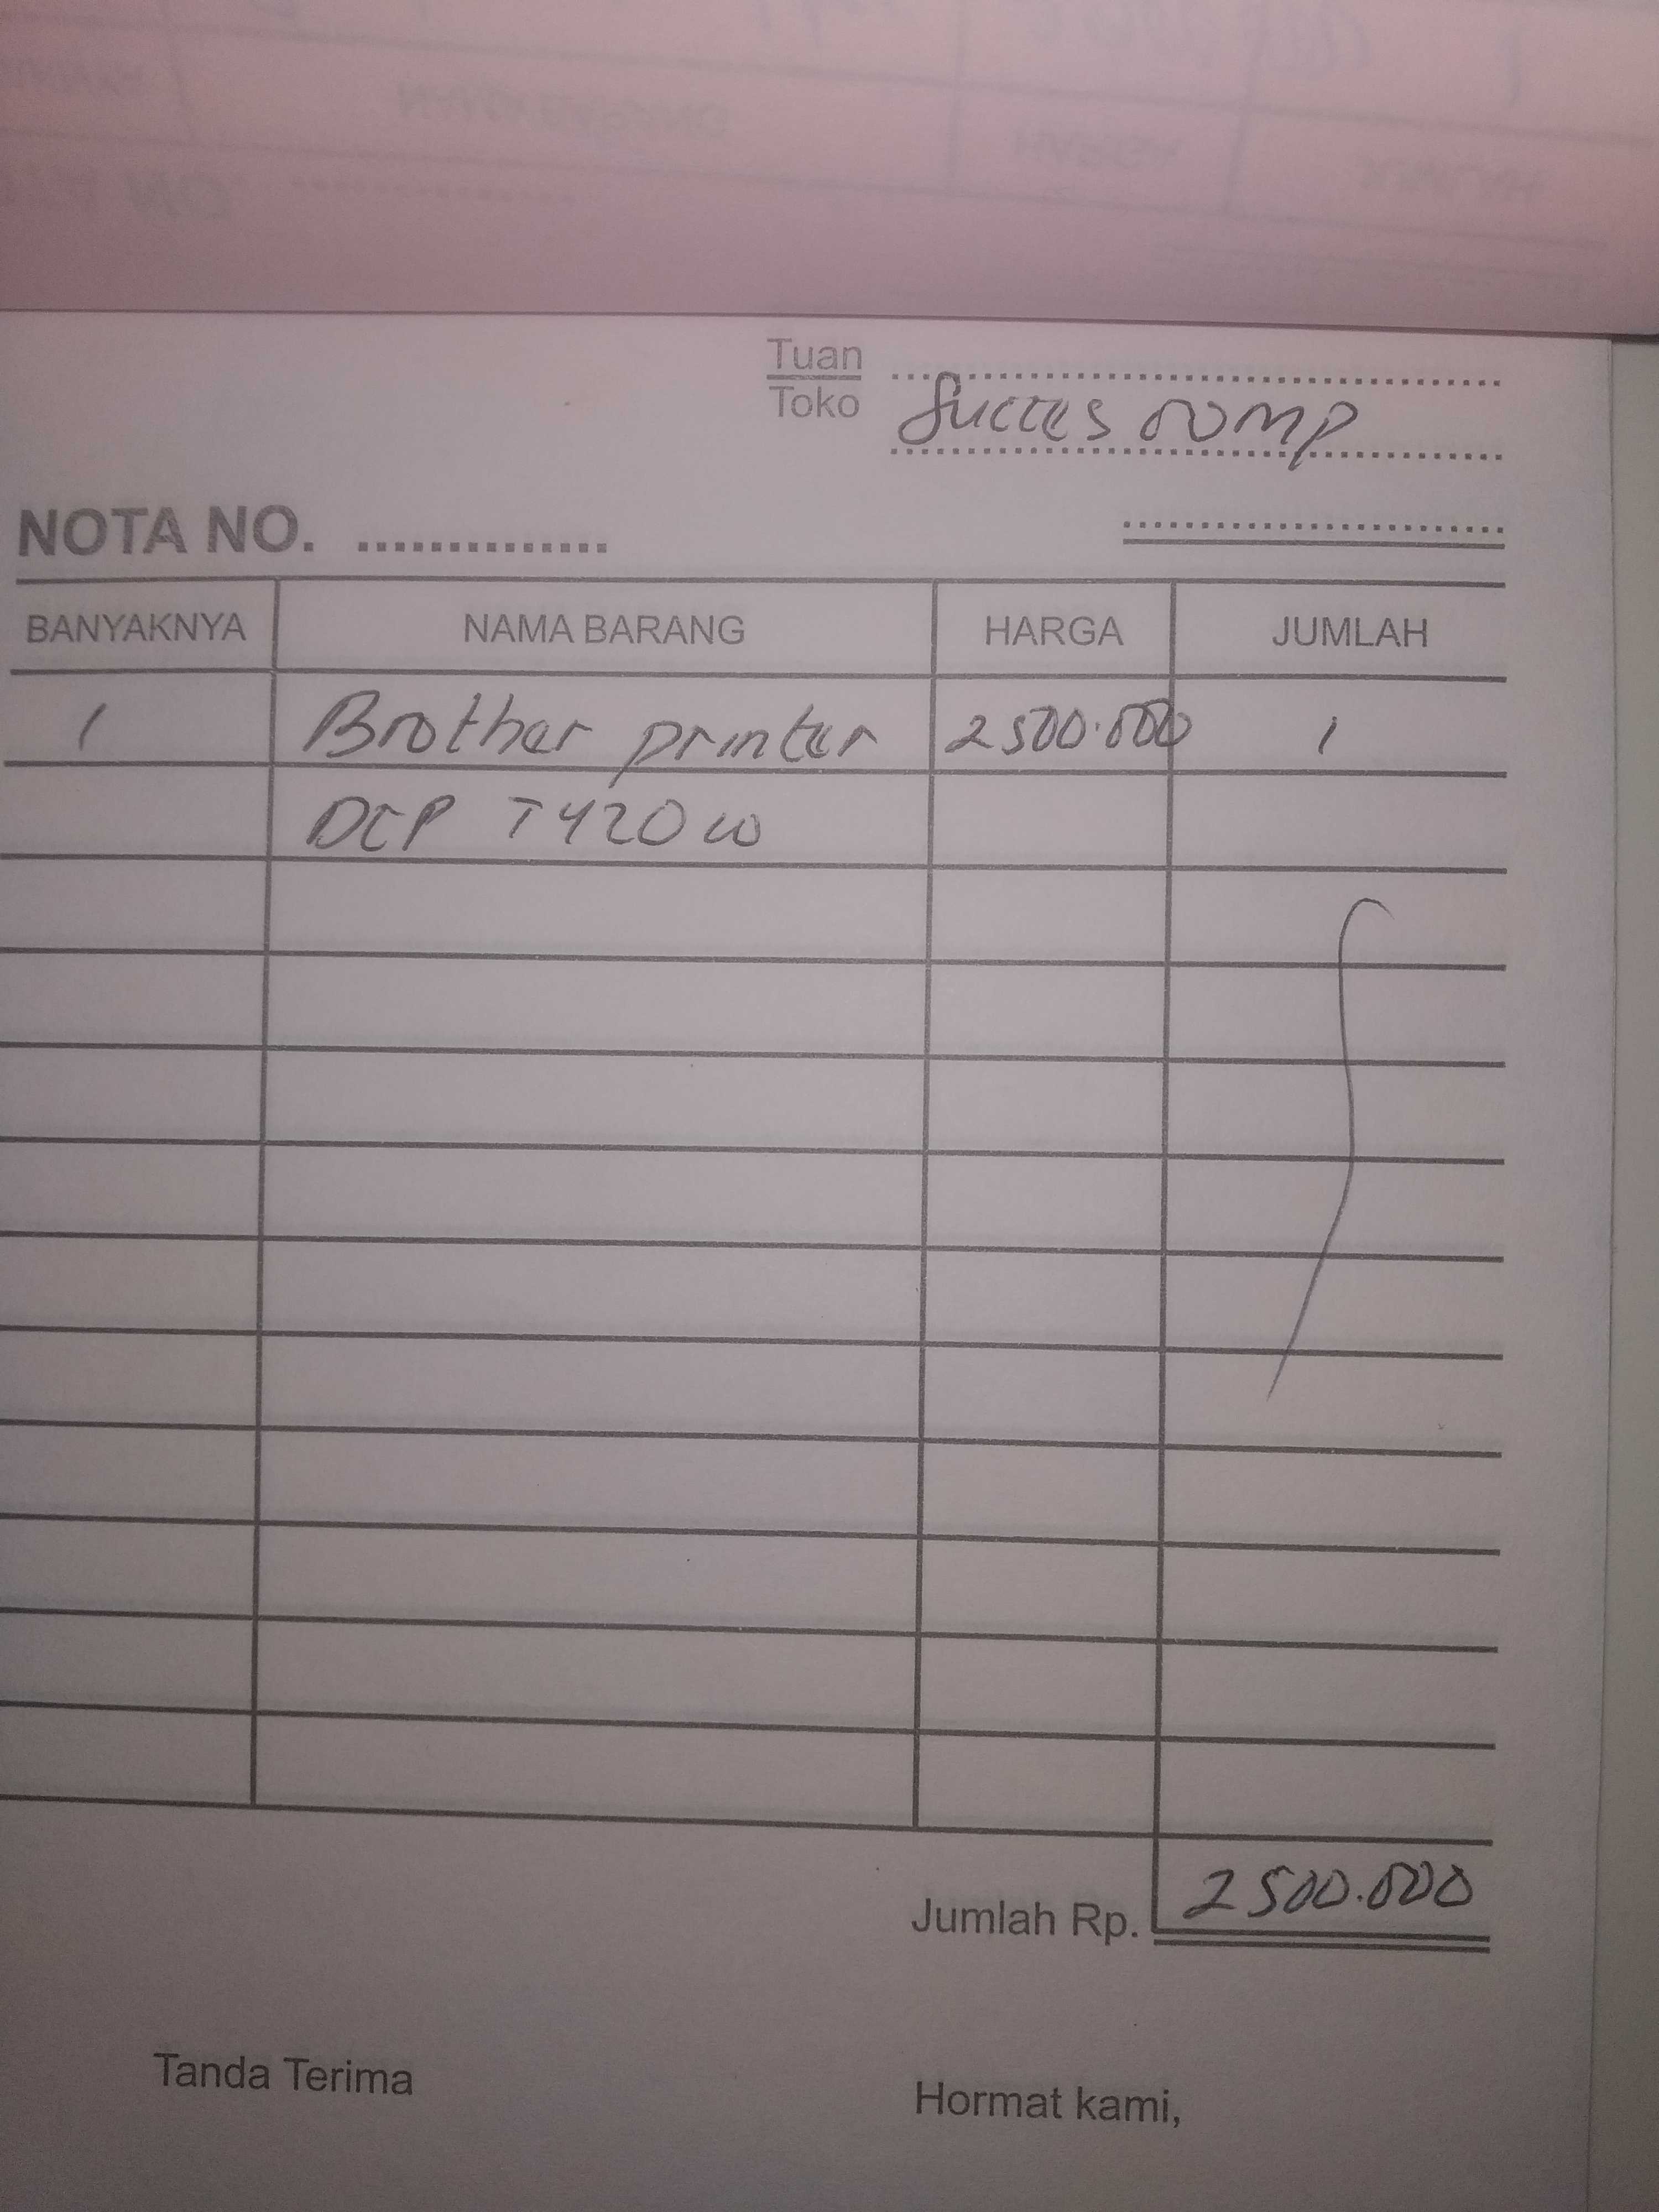 Tuan
Toko Succes comp
NOTA NO. ..............
BANYAKNYA NAMA BARANG HARGA JUMLAH
1 Brother printer 2500.000 1
DCP T420w
Jumlah Rp. 2500.000
Tanda Terima Hormat kami,